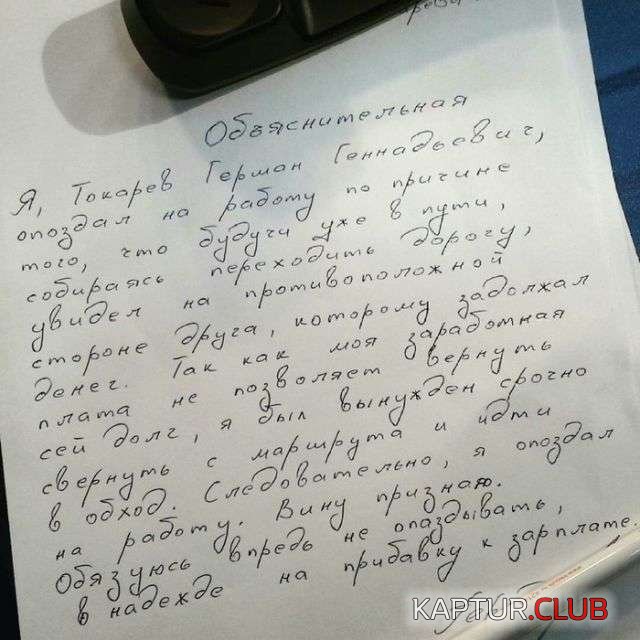 Объяснительная
Я, Токарев Герман Геннадьевич,
опоздал на работу по причине
того, что будучи уже в пути,
собираясь переходить дорогу,
увидел на противоположной
стороне друга, которому задолжал
денег. Так как моя заработная
плата не позволяет вернуть
сей долг, я был вынужден срочно
свернуть с маршрута и идти
в обход. Следовательно, я опоздал
на работу. Вину признаю.
Обязуюсь впредь не опаздывать,
в надежде на прибавку к зарплате.
KAPTUR.CLUB